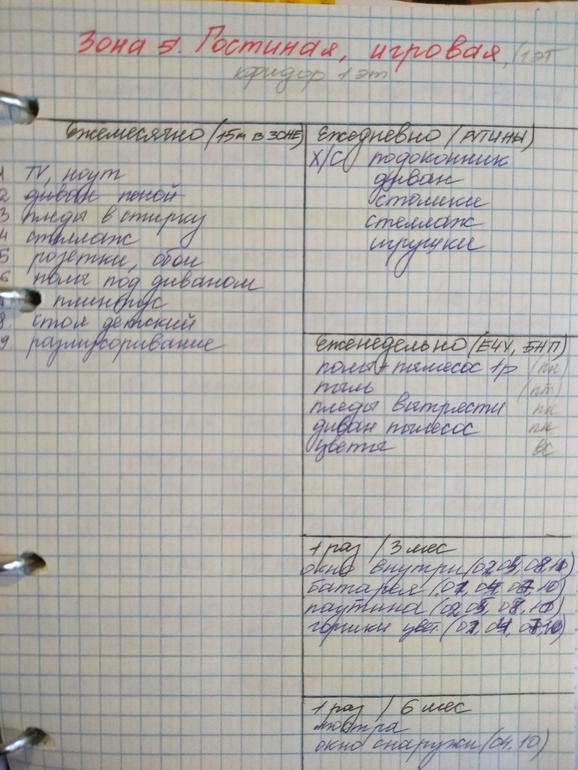 Зона 5. Гостиная, игровая, 1 эт
коридор 1 эт
Ежемесячно (15м в зоне)
1 TV, ноут
2 диван пеной
3 пледы в стирку
4 стеллаж
5 розетки, обои
6 полы под диваном
плинтус
8 стол детский
9 размусоривание
Ежедневно (рутины)
Х/С подоконник
диван
столики
стеллаж
игрушки
Еженедельно (ЕЧУ, БНП)
полы + пылесос 1р (пн)
пыль (пт)
пледы вытрясти пн
диван пылесос пн
цветы вс
1 раз / 3 мес
окно внутри (02, 05, 08, 11)
батарея (01, 04, 07, 10)
паутина (02, 05, 08, 11)
горшки цвет. (01, 04, 07, 10)
1 раз / 6 мес
люстра
окно снаружи (04, 10)